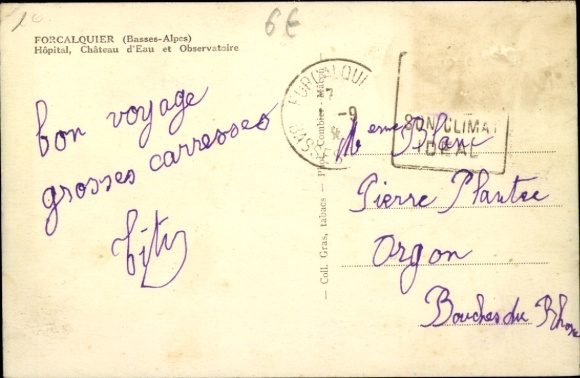 1€
6€
FORCALQUIER (Basses-Alpes)
Hôpital, Château d'Eau et Observatoire
bon voyage
grosses carresses
Tity
Coll. Gras, tabacs
FORCALQUI
BASSES
7
-9
SON CLIMAT
IDEAL
Mme Blanc
Pierre Plantée
Orgon
Bouches du Rhone